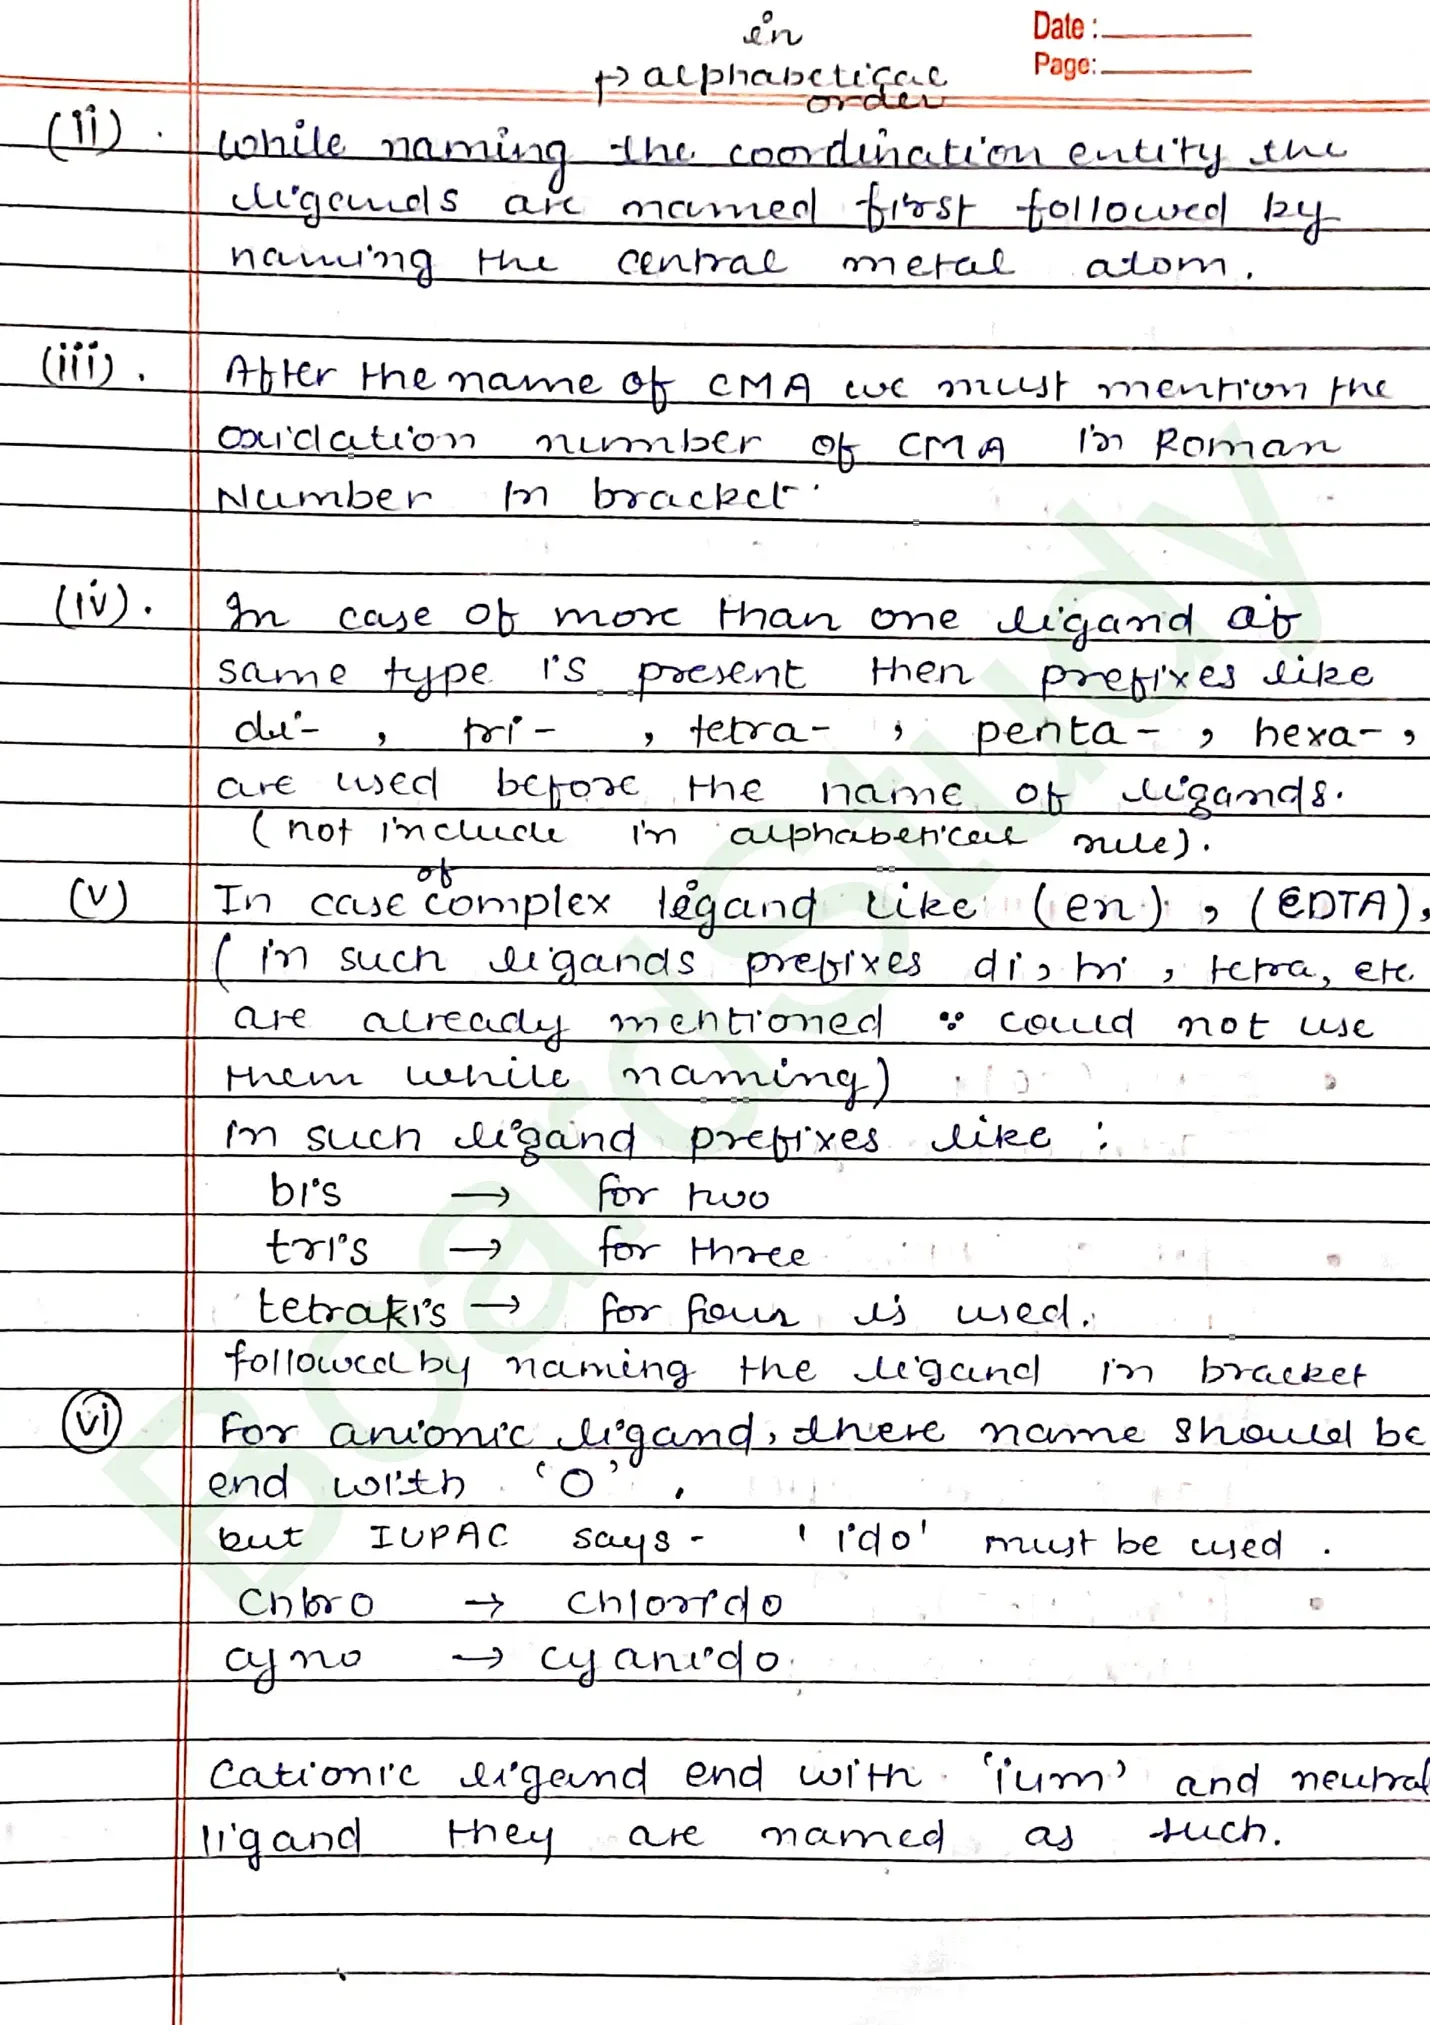 in
Date :
→ alphabetical
Page:
order
(ii). While naming the coordination entity the
ligands are named first followed by
naming the central metal atom.
(iii). After the name of CMA we must mention the
oxidation number of CMA in Roman
Number in bracket.
(iv). In case of more than one ligand of
same type is present then prefixes like
di- , tri- , tetra- , penta- , hexa- ,
are used before the name of ligands.
(not include in alphabetical rule).
of
(v) In case complex ligand like (en) , (EDTA),
(in such ligands prefixes di, tri , tetra, etc.
are already mentioned ∵ could not use
them while naming)
in such ligand prefixes like :
bis → for two
tris → for three
tetrakis → for four is used.
followed by naming the ligand in bracket
(vi) For anionic ligand, there name should be
end with 'O' .
but IUPAC says - 'ido' must be used .
Chloro → chlorido
cyno → cyanido
Cationic ligand end with 'ium' and neutral
ligand they are named as such.
BoardStudy